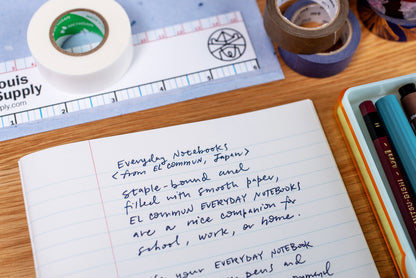 ouis
Supply
ply.com
1 2 3 4 5
Everyday Notebooks
<from EL COMMUN, Japan>
staple-bound and
filled with smooth paper,
EL COMMUN EVERYDAY NOTEBOOKS
are a nice companion for
school, work, or home.
your EVERYDAY NOTEBOOK
pens and
MITSU-BISHI